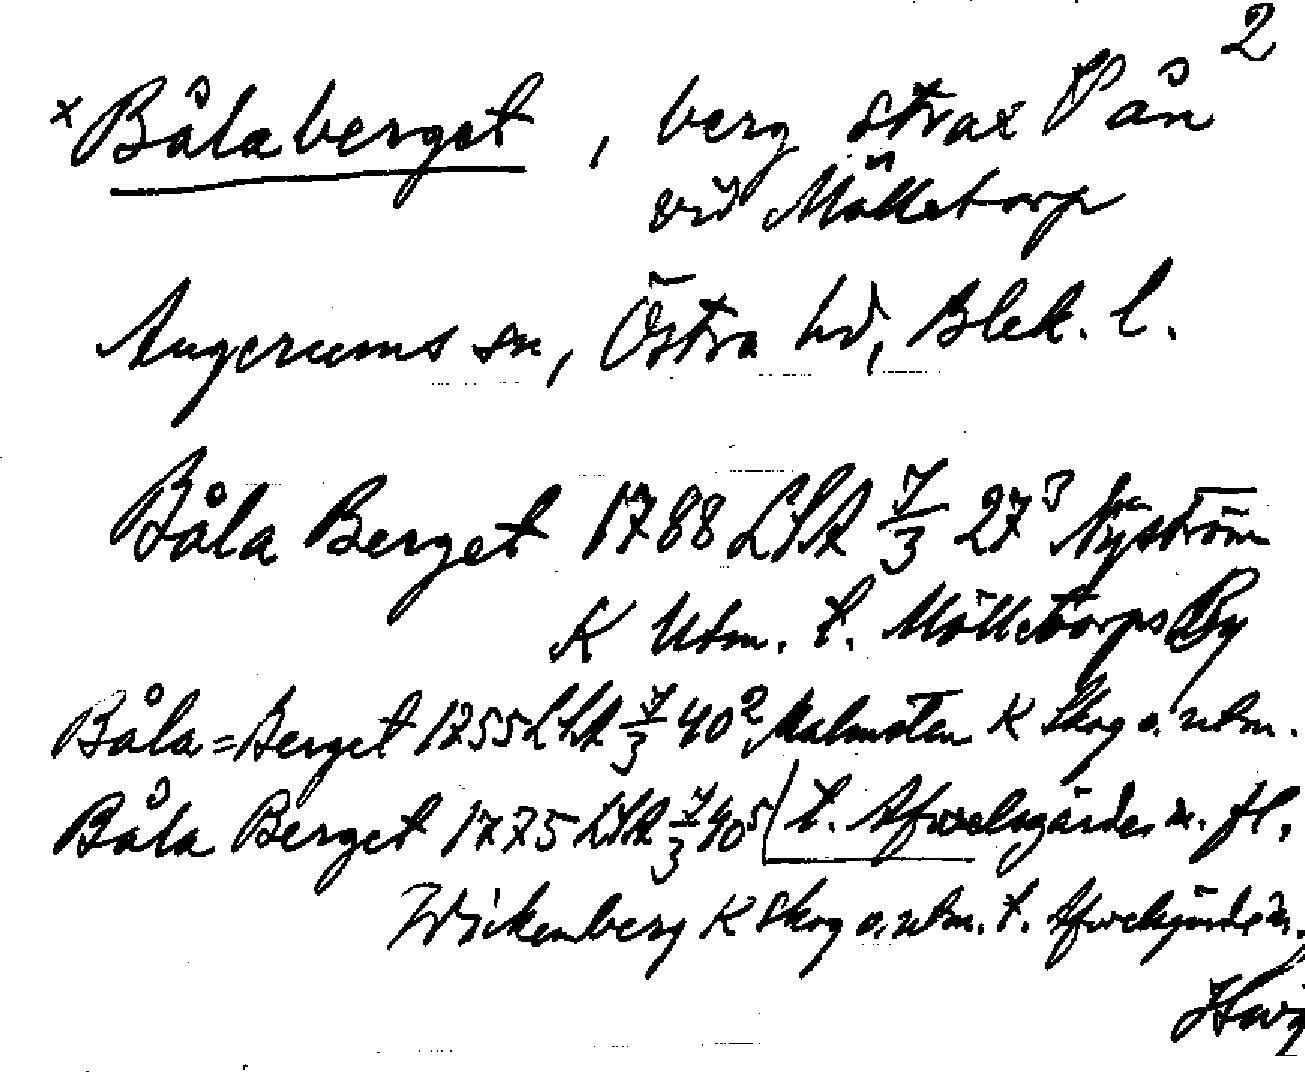 2
× Bålaberget, berg strax V ån
vid Mölletorp
Augerums sn, Östra hd, Blek. l.
Båla Berget 1788 LSA 7/3 27³ Nyström
K Utm. t. Mölletorps By
Båla=Berget 1755 LSA 7/3 40² Malmsten K Skog o. utm.
Båla Berget 1775 LSA 7/3 40⁵ (t. Afvelsgärde m. fl.
Wickenberg K Skog o. utm. t.